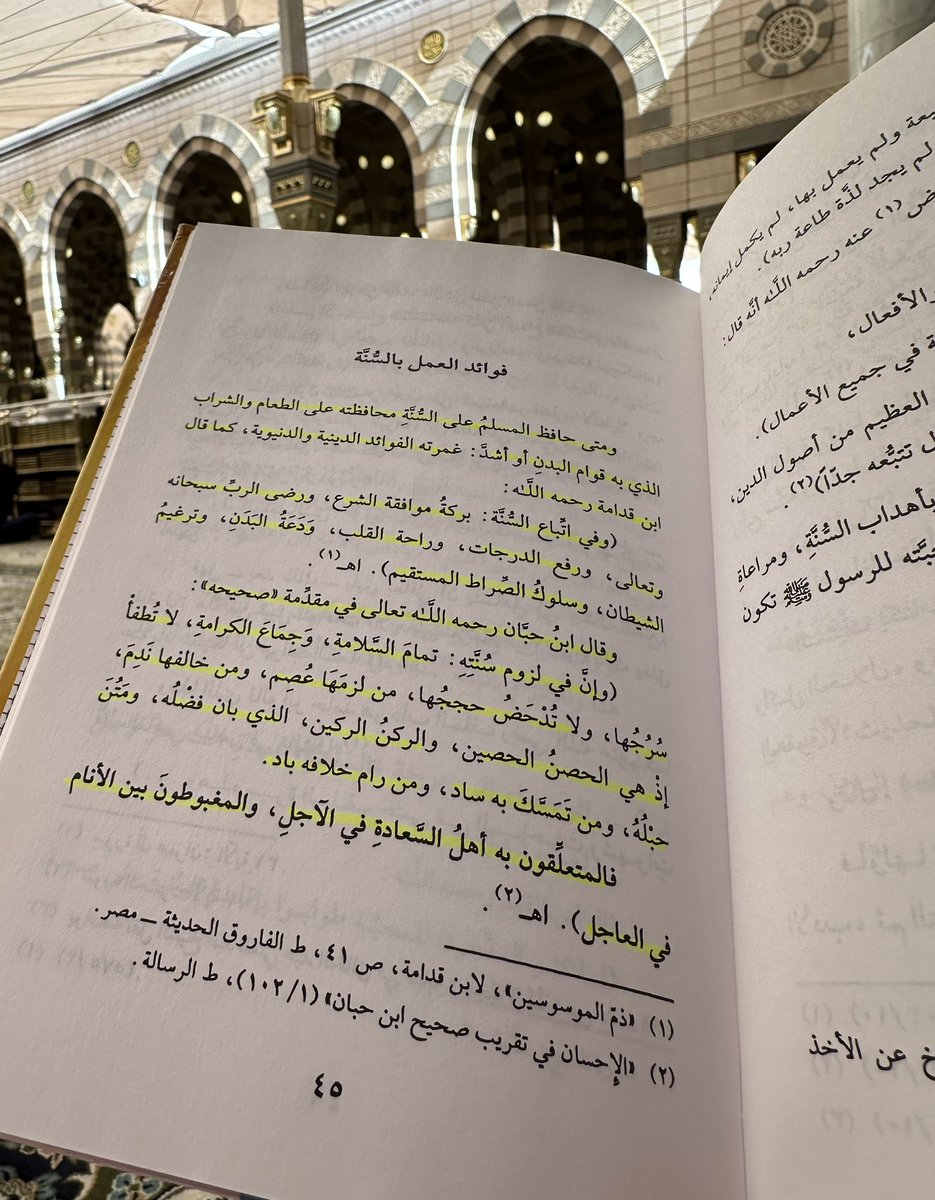 فوائد العمل بالسُّنَّة
ومتى حافظ المسلمُ على السُّنَّةِ محافظته على الطعام والشراب
الذي به قوام البدنِ أو أشدَّ: غمرته الفوائد الدينية والدنيوية، كما قال
ابن قدامة رحمه اللَّه:
(وفي اتِّباع السُّنَّة: بركةُ موافقة الشرع، ورضى الربِّ سبحانه
وتعالى، ورفع الدرجات، وراحة القلب، وَدَعَةُ البَدَنِ، وترغيمُ
الشيطان، وسلوكُ الصِّراط المستقيم). اهـ(١).
وقال ابنُ حبَّان رحمه اللَّه تعالى في مقدِّمة «صحيحه»:
(وإنَّ في لزوم سُنَّتِهِ: تمامَ السَّلامةِ، وَجِمَاعَ الكرامةِ، لا تُطفأْ
سُرُجُها، ولا تُدْحَضُ حججُها، من لزمَهَا عُصِم، ومن خالفها نَدِمَ،
إذْ هي الحصنُ الحصين، والركنُ الركين، الذي بان فضْلُه، ومَتُنَ
حبْلُهُ، ومن تَمَسَّكَ به ساد، ومن رام خلافه باد.
فالمتعلِّقون به أهلُ السَّعادةِ في الآجلِ، والمغبوطونَ بين الأنام
في العاجل). اهـ(٢).
(١) «ذمّ الموسوسين»، لابن قدامة، ص ٤١، ط الفاروق الحديثة – مصر.
(٢) «الإحسان في تقريب صحيح ابن حبان» (١/١٠٢)، ط الرسالة.
٤٥
ولم يعمل بها، لم يكمل إيمانه،
لم يجد لذَّة طاعة ربه).
(١) عنه رحمه اللَّه أنَّه قال:
الأفعال،
في جميع الأعمال).
العظيم من أصول الدين،
تتبُّعه جدّاً)(٢).
بأهداب السُّنَّةِ، ومراعاةِ
للرسول ﷺ تكون
عن الأخذ